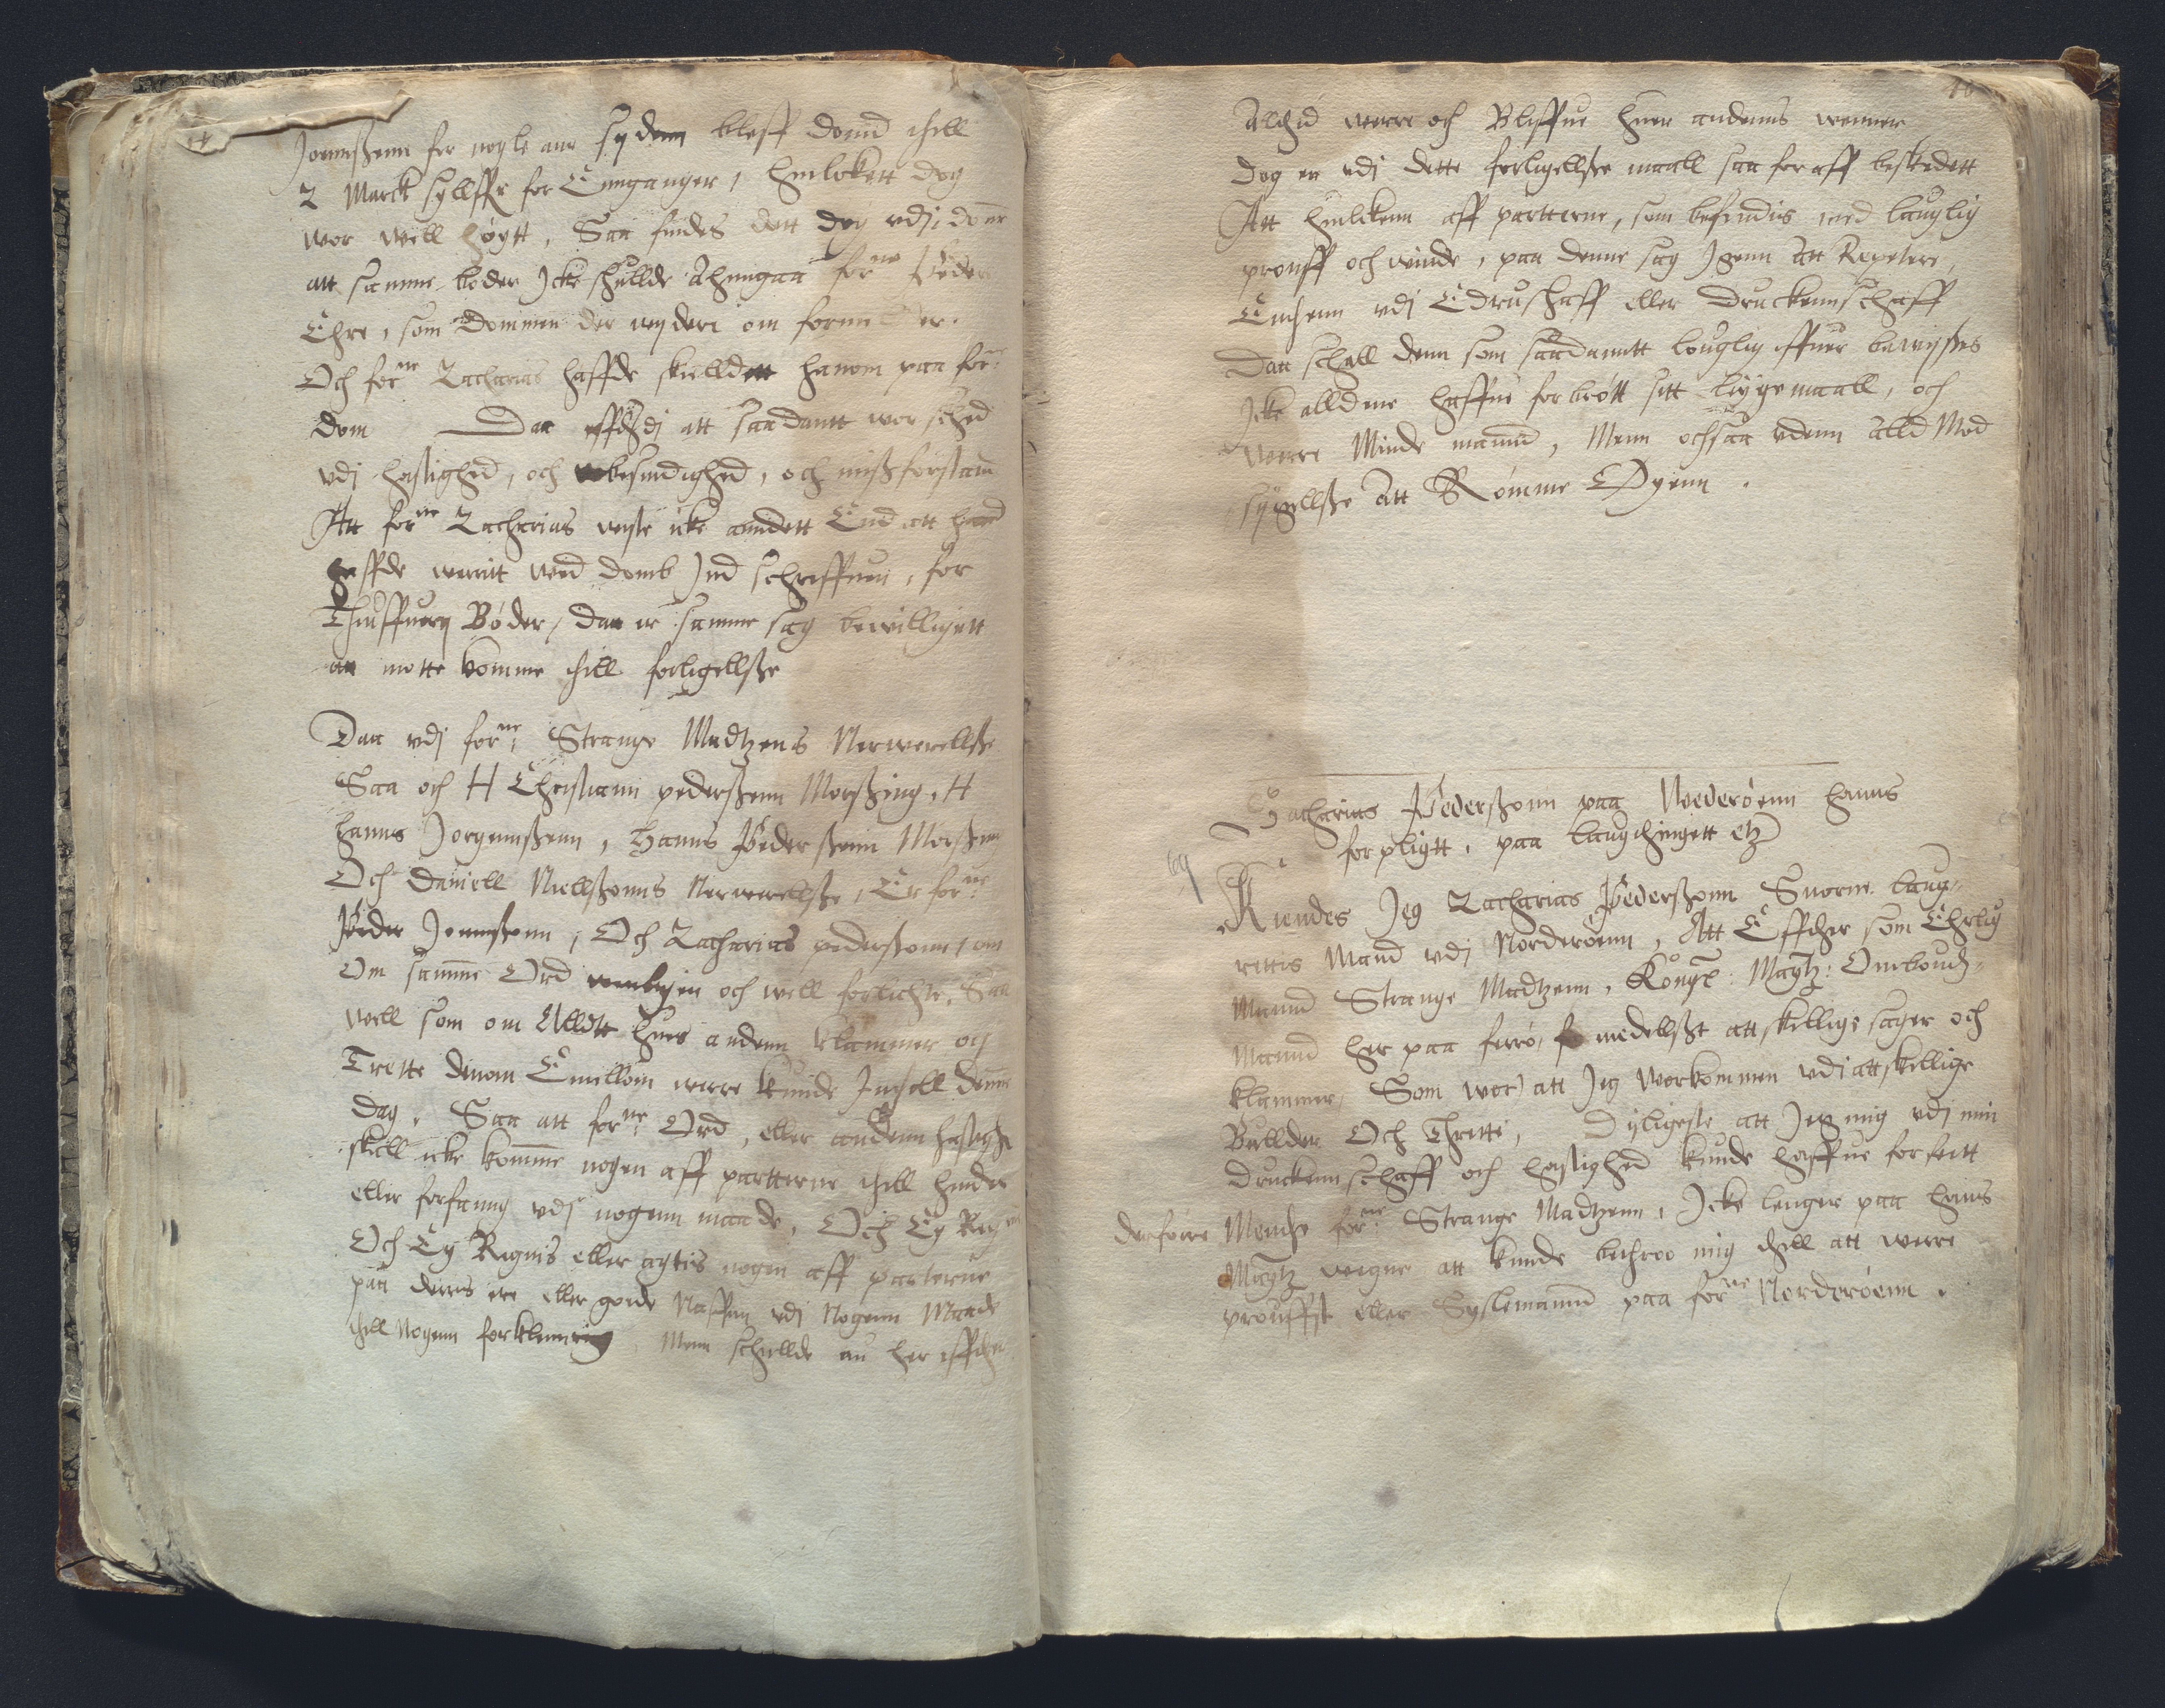 Joennßenn for nogle aar syden bleff dømd thill
2 Marck sylffr for Enngangen, huilckett dog
wor well høgtt, Saa findes dett dog udj domen
att samme bøder Icke skullde Ahnngaa forne Peder
Ehre, som dommen der ... om formelder.
Och forne Zacharias haffde skielldett hanom paa forne
dom Daa effthdj att saadantt wor skeed
udj hastighed, och ubesindighed, och mißforstand
Att forne Zacharias viste icke anndett End att hand
haffde werritt wed domb Ind schreffuen, for
Thiuffuery Bøder, daa er samme sag bewilligett
att motte komme thill forligellße
Daa udj forne Strange Madtzens Nerwerellße
Saa och H Christiann pederßenn Morßing, H
hanns Jorgennßenn, Hanns Peder ßenn Morßing
Och Daniell Niellßonns Nerwerellße, Er forne
Peder Joennßonn, Och Zacharias pederßonn, om
Om samme Ord wenligen och well forlichte, Saa
well som om Alldtt hues andenn klammer och
Trette dennom Emellom werre kunde Inthill denne
dag. Saa att forne Ord, eller andenn hastighed
skall icke komme nogen aff partterne thill hinder
eller forfanng udj nogenn maade, Och Ey
Och Ey Regnis eller agtis nogen aff parterne
paa derris ere eller gode Naffnn udj Nogenn Maade
thill Nogenn forklenring, Menn schullde nu her effther
Altid werre och Bliffue huer andenns wenner
Dog er udj dette forligellße maall saa for aff beskedett
Att huilckenn aff partterne, som befindis med lauglig
prouff och winde, paa denne sag Igenn att Repetere,
Enthenn udj Edrushaff eller Druckennschaff
Daa schall denn som saadanntt louglig offuer bewyßes
Icke alldene haffue forbrøtt sitt lyge maall, och
werre Minde mannd, Menn ochsaa udenn alld Mod
sygellße Att Rømme Øyenn.
Zacharias Pederßonn paa Wederøenn hanns
forpligtt, paa laugthingett etz
Kiendes Jeg Zacharias Pederßonn Suorne laug-
rettis Mand udj Norderøenn, Att Effther som Ehrlig
Mannd Strange Madtzenn, Kongl: Maytz: Ombouds-
Mannd her paa ferrø, formedellßt att skellige sager och
klammer, Som wor) att Jeg Workommen udj attskellige
Bullder Och Thrette, Dyligeste att Jeg mig udj min
Druckennschaff och hastighed kunde haffue forseett
derforre Menthe forne Strange Madtzenn, Icke lenger paa hans
Maytz wegne att kunde bethroo mig thill att werre
prouffst eller Syslemannd paa forne Norderøenn.